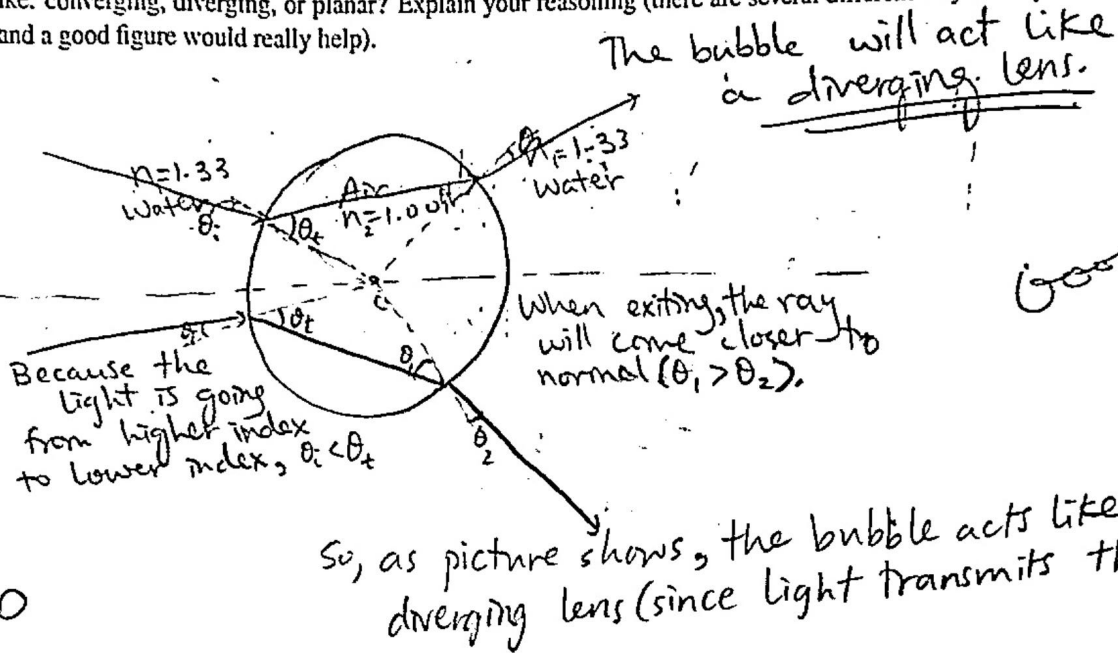 like: converging, diverging, or planar? Explain your reasoning (there are several different
and a good figure would really help).
The bubble will act like
a diverging lens.
n=1.33
Water
θi
Air
n₂=1.0
θt
n₁=1.33
Water
c
θi
θt
θ₁
θ₂
When exiting, the ray
will come closer to
normal (θ₁>θ₂).
Because the
light is going
from higher index
to lower index, θi<θt
So, as picture shows, the bubble acts like
diverging lens (since light transmits